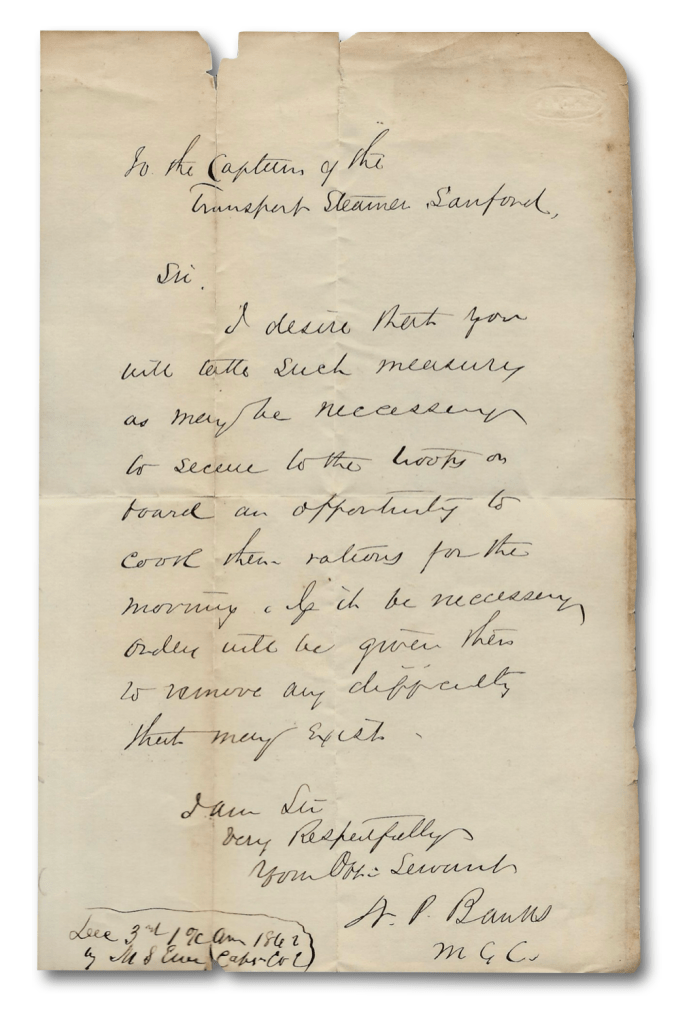 To the Captain of the
Transport Steamer Sanford,
Sir.
I desire that you
will take such measures
as may be neccessary
to secure to the troops on
board an opportunity to
cook their rations for the
morning. If it be neccessary
orders will be given then
to remove any difficulty
that may exist.
I am Sir
Very Respectfully
Your Obt Servant
N. P. Banks
M G C.
Dec 3rd AM 1862
by M S (Capt Co